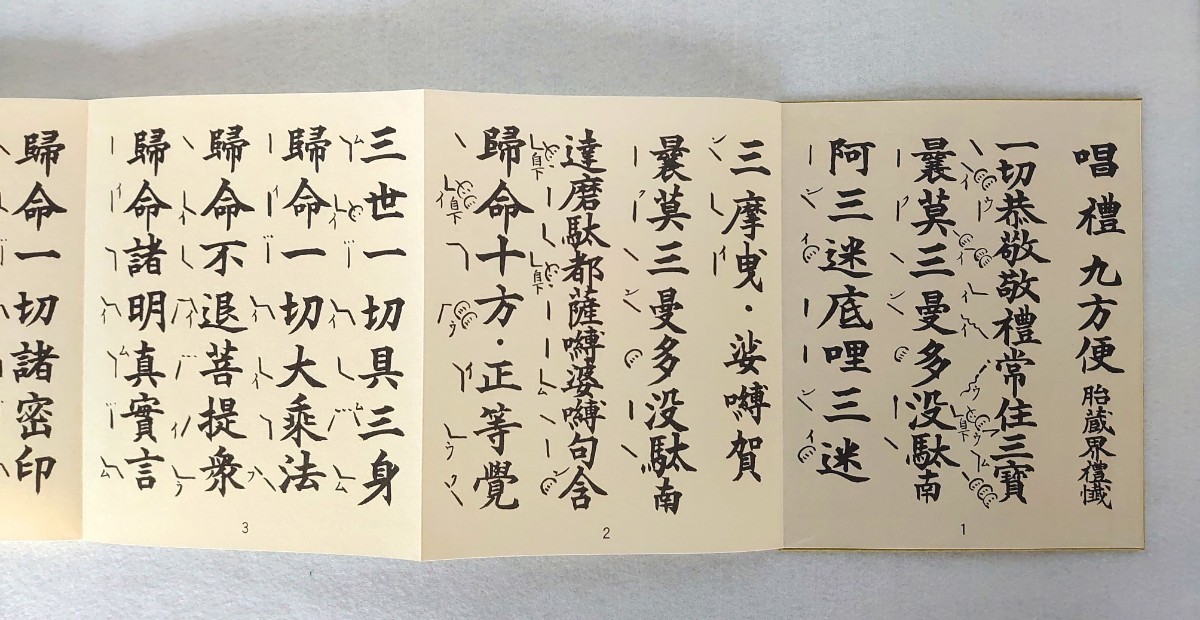 唱禮 九方便 胎蔵界禮懺
一切恭敬敬禮常住三寶
曩莫三曼多没駄南
阿三迷底哩三迷
1
三摩曳・娑嚩賀
曩莫三曼多没駄南
達磨駄都薩嚩婆嚩句含
歸命十方・正等覺
2
三世一切具三身
歸命一切大乘法
歸命不退菩提衆
歸命諸明真實言
3
歸命一切諸密印